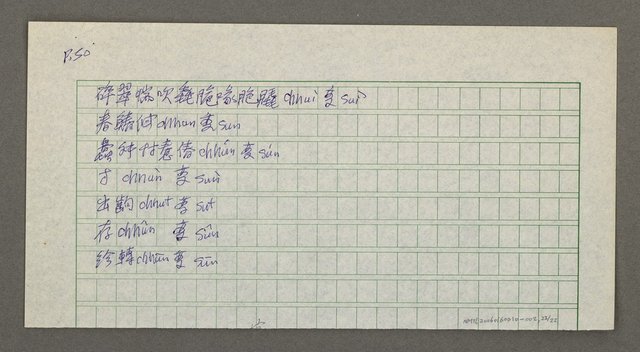 P.50
碎翠喘吹毳脆喙脆 chhui 变 sui
春 chhun 变 sun
蠢忖 chhún 变 sún
寸 chhùn 变 sùn
出齣 chhut 变 sut
存 chhûn 变 sûn
轉 chhūn 变 sūn
NMTL20060160010-002, 22/22